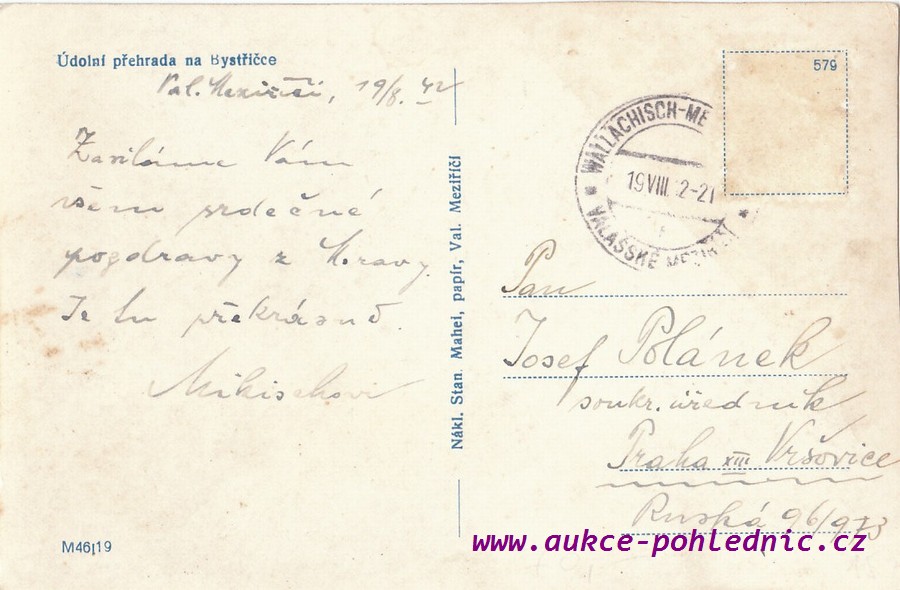 Údolní přehrada na Bystřičce
Val. Meziříčí, 19/8. 42
Zasíláme Vám
všem srdečné
pozdravy z Moravy.
Je tu překrásně.
Mikischovi
M46|19
Nákl. Stan. Mahel, papír, Val. Meziříčí
579
* WALLACHISCH-ME
19 VIII. 2-21
VALAŠSKÉ MEZIŘÍČÍ *
Pan
Josef Polánek
soukr. úředník
Praha XIII Vršovice
Ruská 96/973
www.aukce-pohlednic.cz